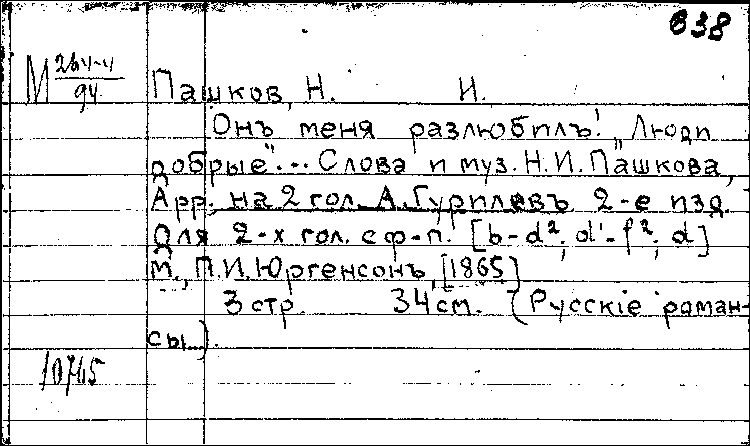 638
М 264-4
94
Пашков, Н. И.
Онъ меня разлюбилъ! „Люди
добрые"... Слова и муз. Н. И. Пашкова,
Арр. на 2 гол. А. Гурилевъ 2-е изд.
для 2-х гол. с ф-п. [b-d²; d'-f²; d]
М., П. И. Юргенсонъ, [1865]
3 стр. 34 см. (Русскіе роман-
сы...).
10745